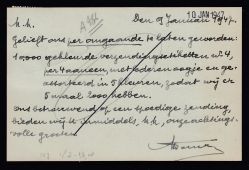 10 JAN 1947
Den 9 Januari 1947.
M.M.
Gelieft ons per omgaande te laten geworden:
10.000 gekleurde verzendingsetiketten nº 4,
per 4 aaneen, met ederen oogje en ge-
assorteerd in 5 kleuren, zodat wij er
5 maal 2000 hebben.
Ons betrouwend op een spoedige zending,
bieden wij U inmiddels, M.M., onze achtings-
volle groeten